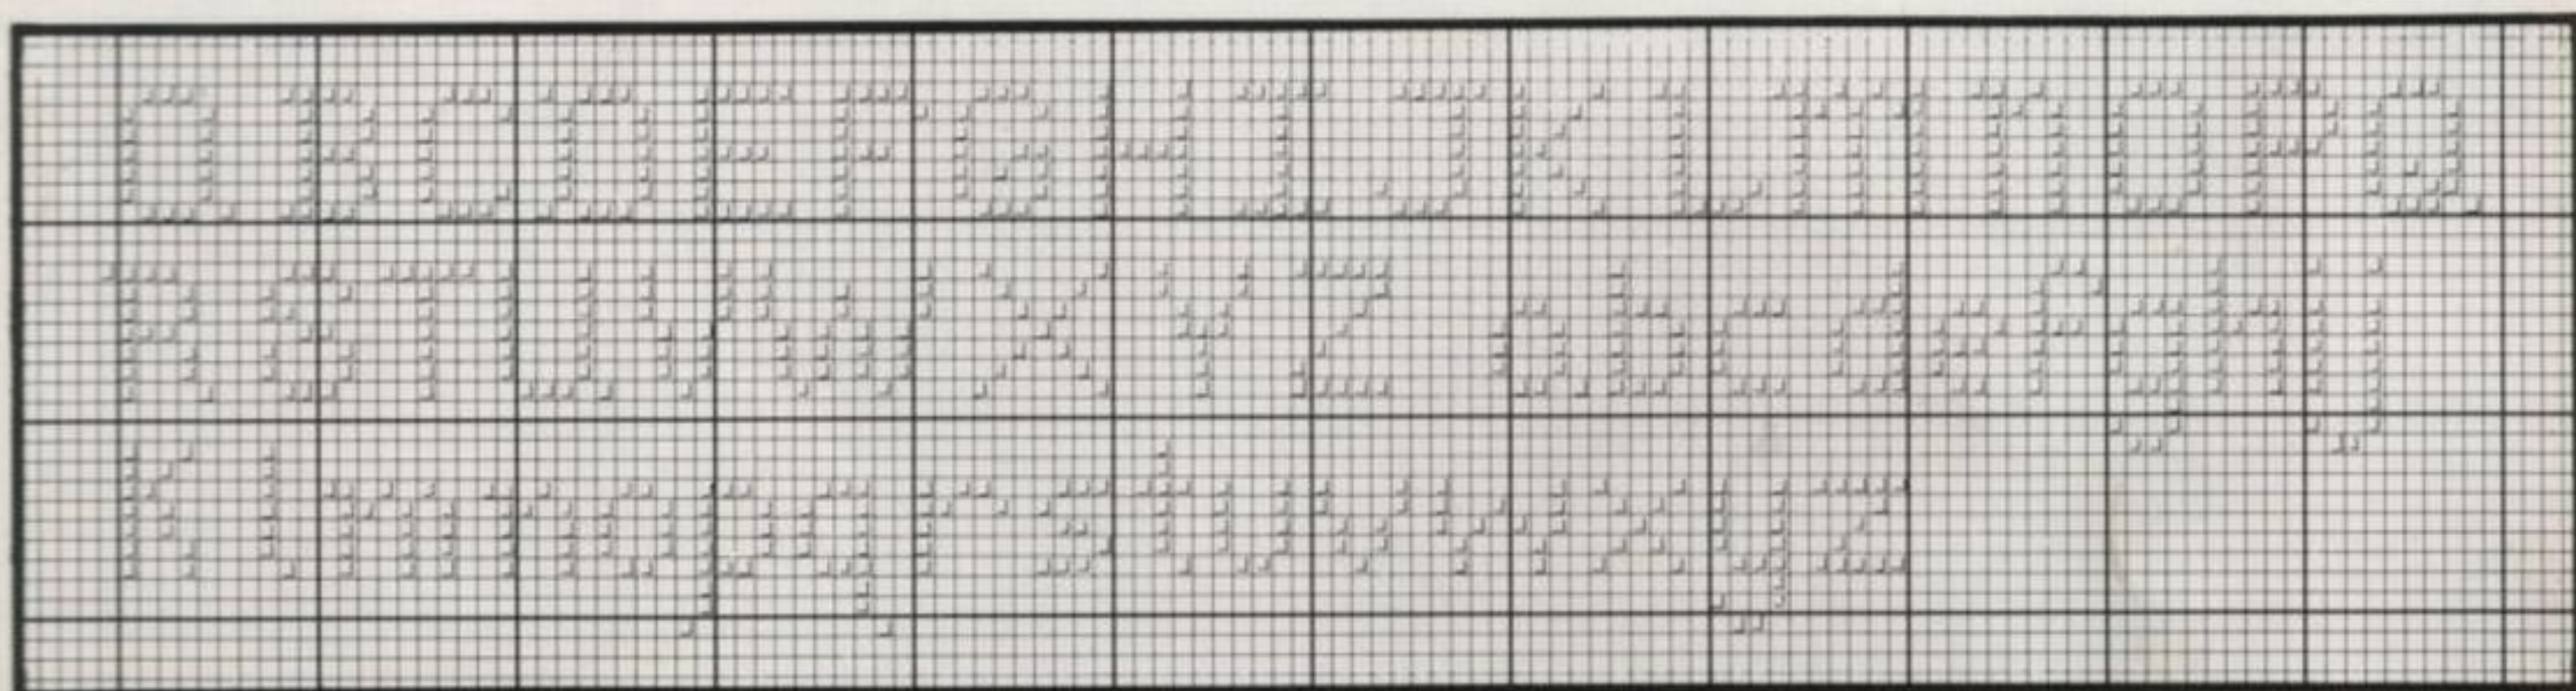 A B C D E F G H I J K L M N O P Q
R S T U V W X Y Z a b c d e f g h i j
k l m n o p q r s t u v w x y z